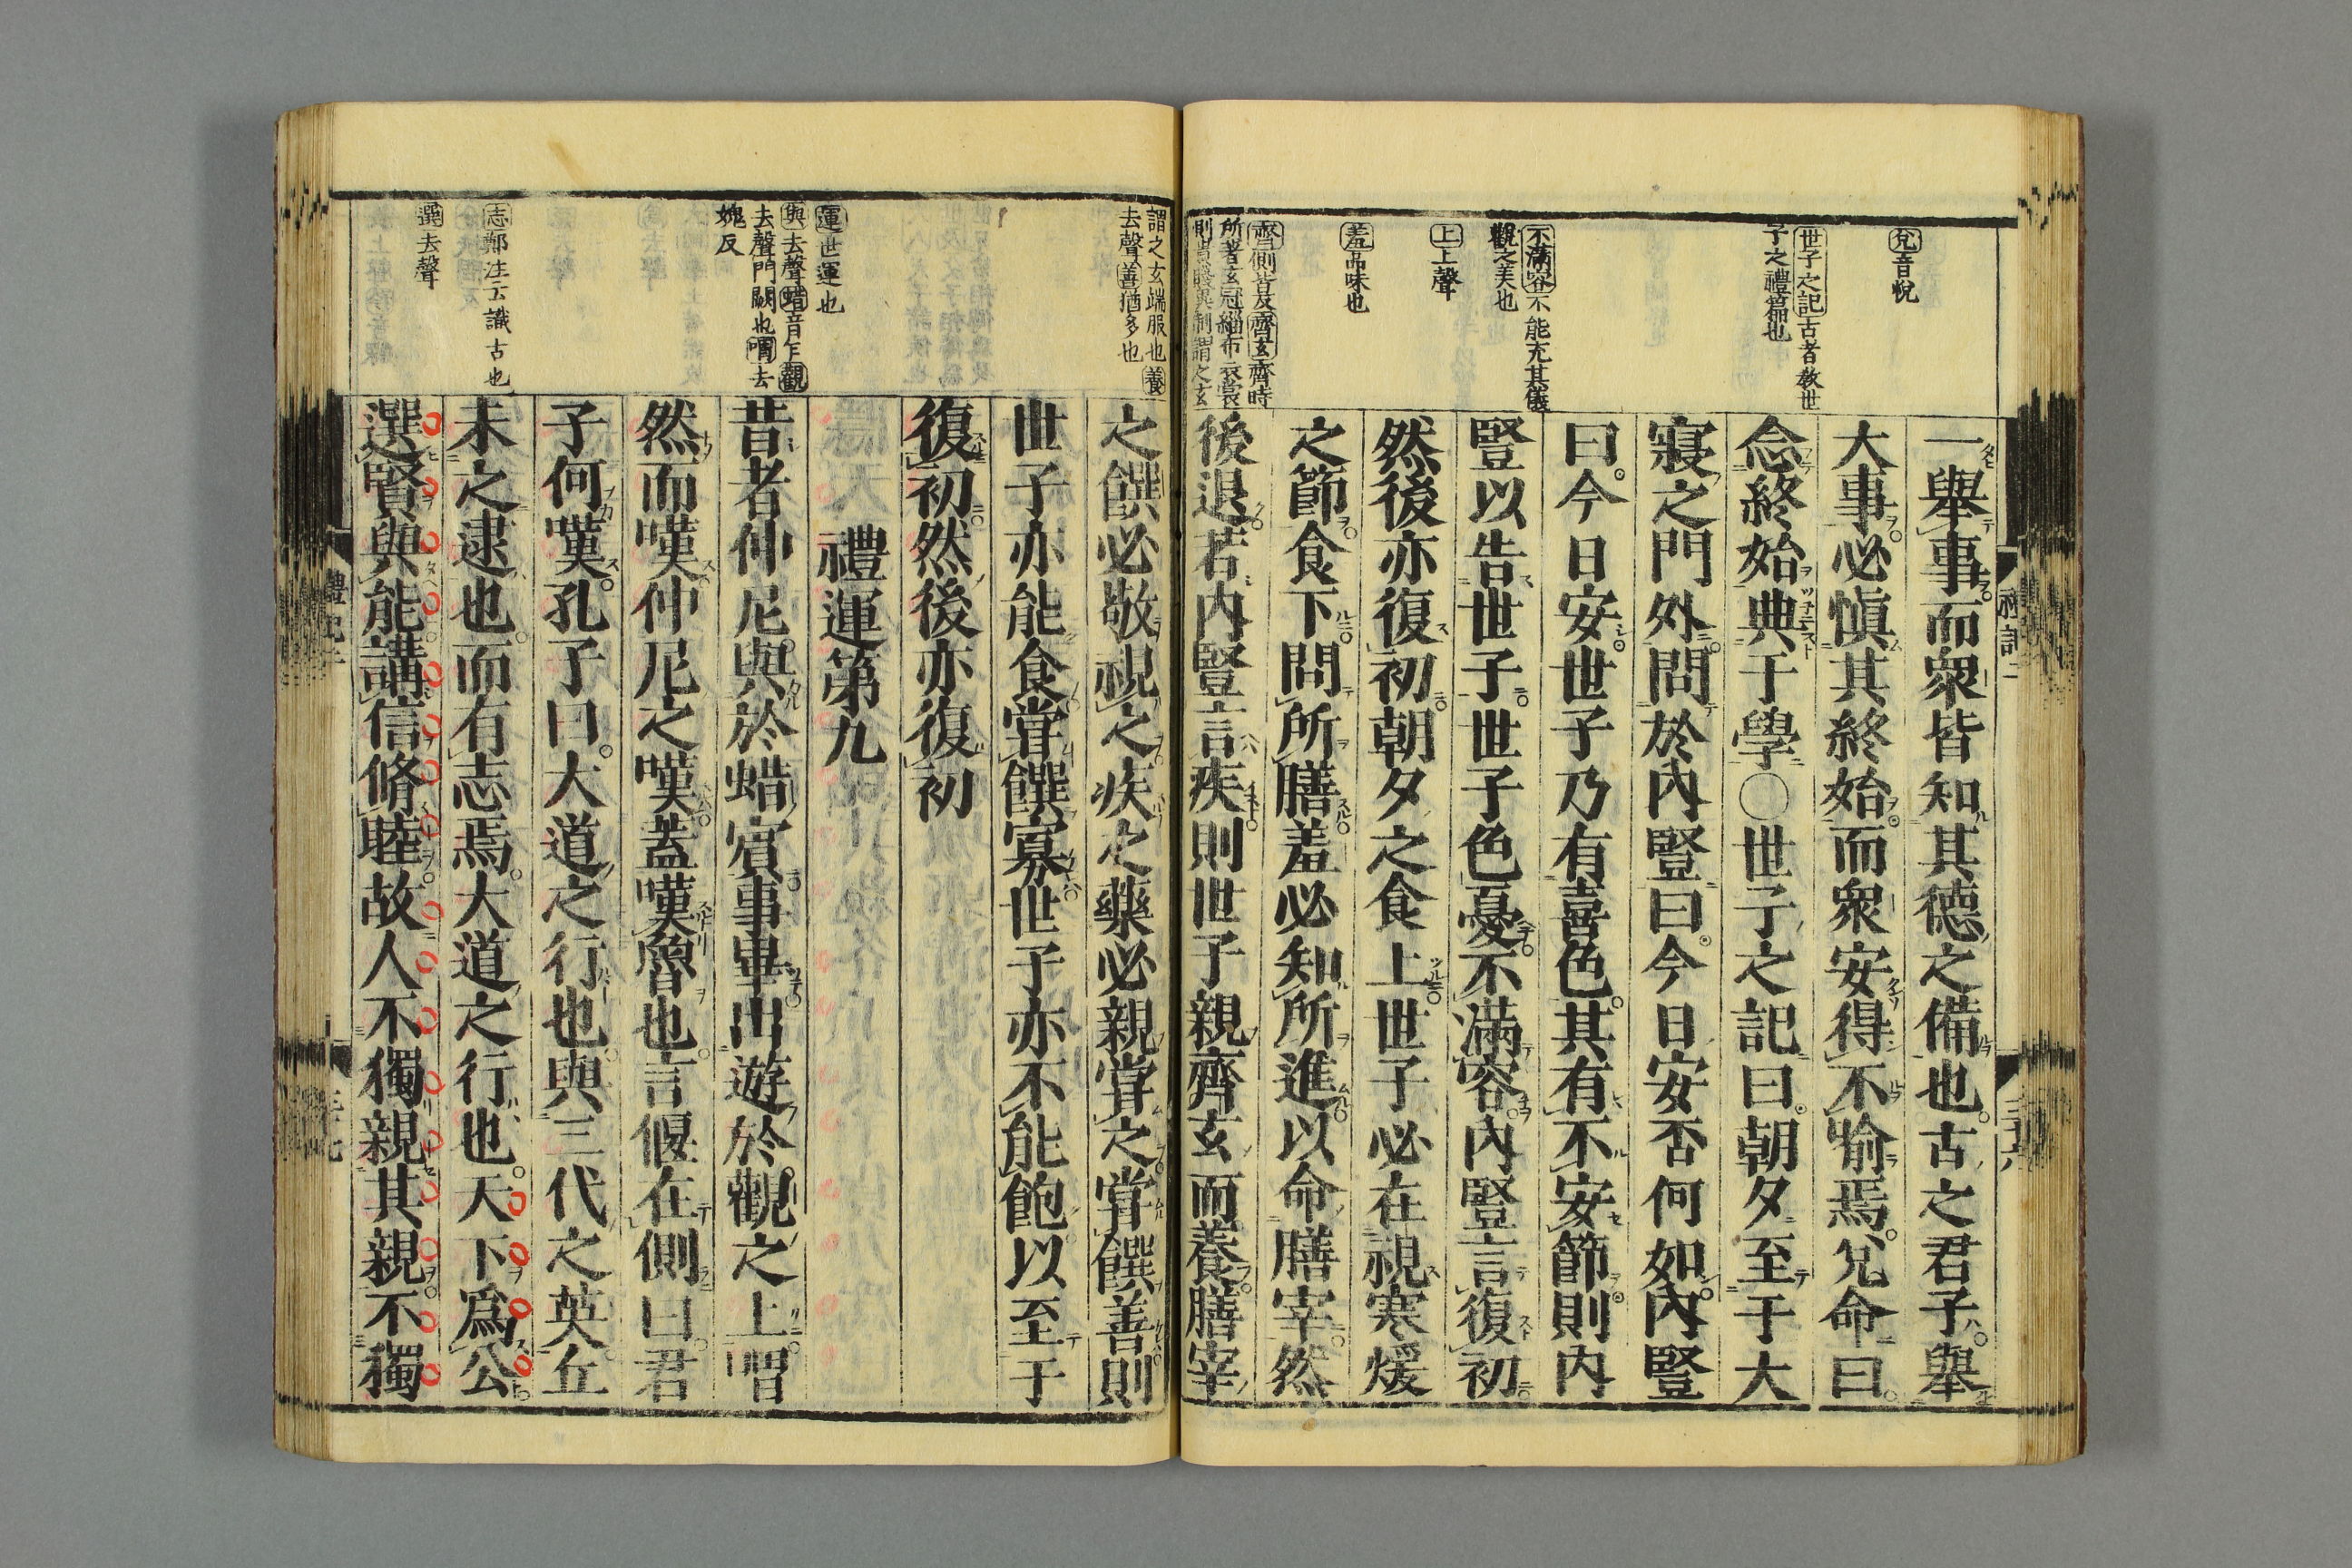 兌音悅
世子之記古者教世
子之禮篇也
不滿容不能充其儀
觀之美也
上上聲
羞品味也
齊側皆反齊玄齊時
所著玄冠緇布衣裳
一舉事而眾皆知其德之備也古之君子舉
大事必慎其終始而眾安得不喻焉兌命曰
念終始典于學○世子之記曰朝夕至于大
寢之門外問於內豎曰今日安否何如內豎
曰今日安世子乃有喜色其有不安節則內
豎以告世子世子色憂不滿容內豎言復初
然後亦復初朝夕之食上世子必在視寒煖
之節食下問所膳羞必知所進以命膳宰然
後退若內豎言疾則世子親齊玄而養膳宰
謂之玄端服也養
去聲善猶多也
運世運也
與去聲蜡音乍觀
去聲門闕也喟去
媿反
志鄭注云識古也
選去聲
之饌必敬視之疾之藥必親嘗之嘗饌善則
世子亦能食嘗饌寡世子亦不能飽以至于
復初然後亦復初
禮運第九
昔者仲尼與於蜡賓事畢出遊於觀之上喟
然而嘆仲尼之嘆蓋嘆魯也言偃在側曰君
子何嘆孔子曰大道之行也與三代之英丘
未之逮也而有志焉大道之行也天下爲公
選賢與能講信脩睦故人不獨親其親不獨